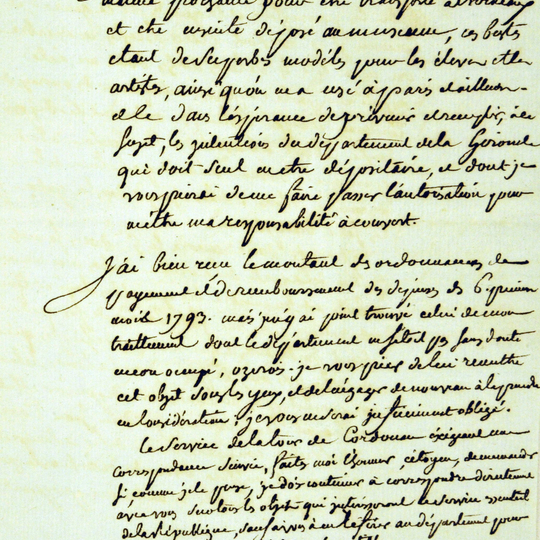 même prudence pour être transporté à Bordeaux
et être ensuite déposé au museum, ces bustes
étant de superbes modèles pour les élèves et les
artistes, ainsi qu'on en a usé à paris et ailleurs
et le dans l'espérance de prévenir et remplir, à ce
sujet, les intentions du département de la Gironde
qui doit seul en etre dépositaire, et dont je
vous prierai de me faire passer l'autorisation pour
mettre ma responsabilité à couvert.
J'ai bien reçu le montant des ordonnances de
payement et de remboursement des dépenses des 6 premiers
mois 1793. mais j'n'y ai point trouvé celui de mon
traittement dont le département ne s'étoit pas sans doute
encore occupé, je vous prie de lui remettre
cet objet sous les yeux, et de l'engager de nouveau à le prendre
en considération; je vous en serai infiniment obligé.
Le Service de la tour de Cordouan éxigeant une
correspondance suivie, faites moi l'honneur, citoyen, de me mander
si, comme je le pense, je dois continuer à correspondre directement
avec vous sur tous les objets qui intéressent le service
de la République, sauf à vous à en référer au département pour